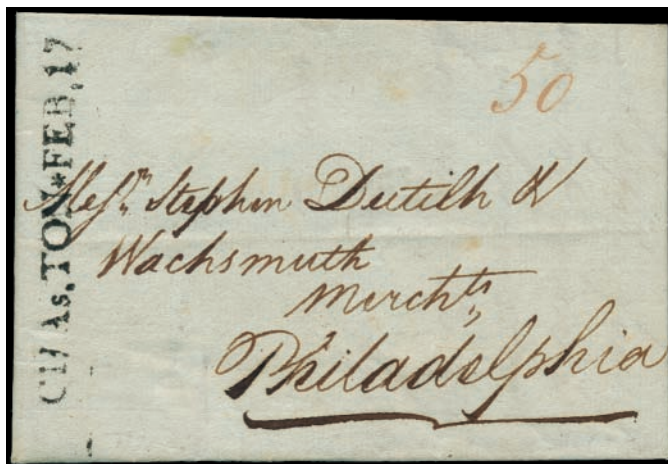 CHAs.TON*FEB,17
50
Messrs. Stephen Dutilh &
Wachsmuth
Merchts.
Philadelphia